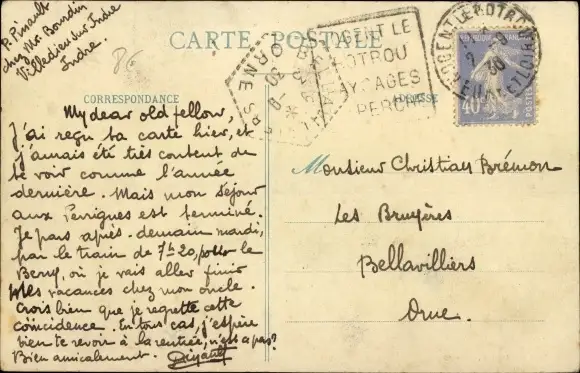 P. Pinault
chez Mr. Bourdin
Villedieu sur Indre
Indre.
86
CARTE POSTALE
NOGENT LE
ROTROU
PAYSAGES
PERCHE
NOGENT-LE-ROTROU
EURE ET LOIR
30
ORNE
40
CORRESPONDANCE
ADRESSE
My dear old fellow,
J'ai reçu ta carte hier, et
j'amais été très content de
te voir comme l'année
dernière. Mais mon séjour
aux Perrignes est terminé.
Je pars après-demain mardi,
par le train de 7h20, pour le
Berry, où je vais aller finir
mes vacances chez mon oncle.
Crois bien que je regrette cette
coïncidence. En tous cas, j'espère
bien te revoir à la rentrée, n'est-ce pas?
Bien amicalement. Pinault
Monsieur Christian Brémon
Les Bruyères
Bellavilliers
Orne.